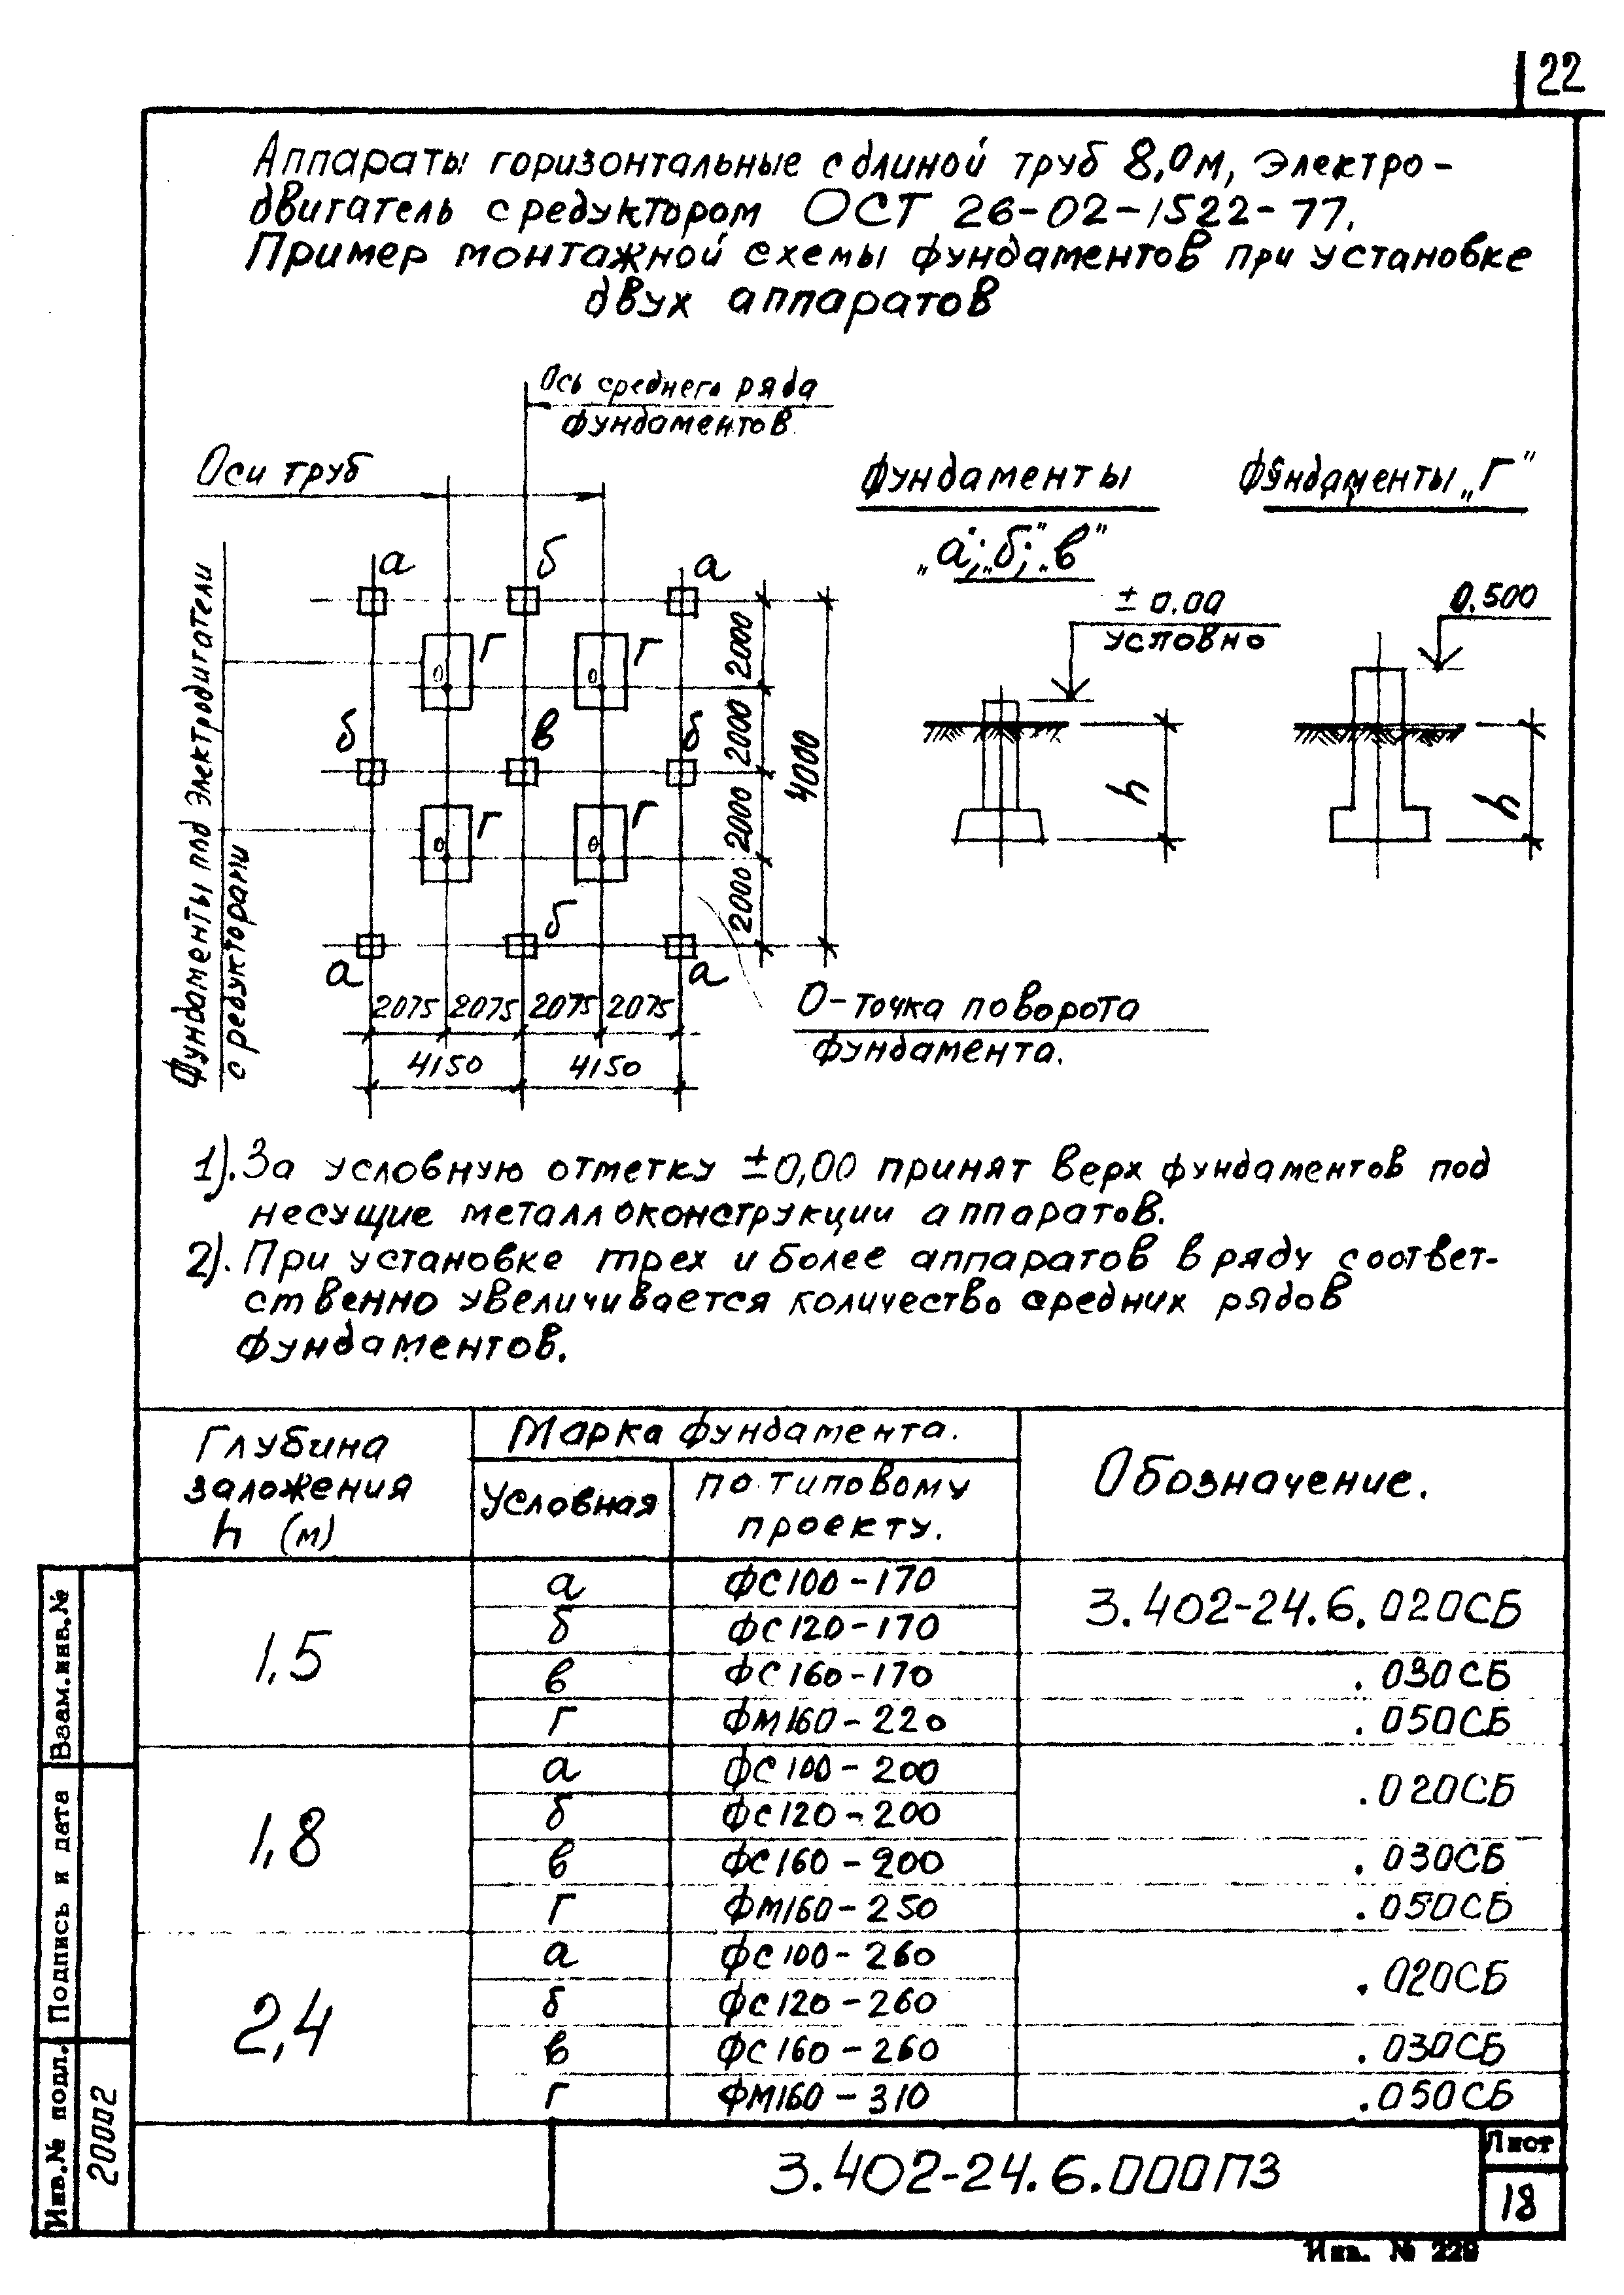 22
Аппараты горизонтальные с длиной труб 8,0м, электро-
двигатель с редуктором ОСТ 26-02-1522-77.
Пример монтажной схемы фундаментов при установке
двух аппаратов
Ось среднего ряда
фундаментов
Оси труб
Фундаменты под электродвигатели
с редукторами
а б а
г г
0 0
б в б
г г
0 0
а б а
2000
2000
2000
2000
4000
2075 2075 2075 2075
4150 4150
О-точка поворота
фундамента.
Фундаменты
„а"; „б"; „в"
±0.00
условно
h
Фундаменты „Г"
0.500
h
1). За условную отметку ±0,00 принят верх фундаментов под
несущие металлоконструкции аппаратов.
2). При установке трех и более аппаратов в ряду соответ-
ственно увеличивается количество средних рядов
фундаментов.
Глубина заложения h (м) Марка фундамента. Обозначение.
Условная по типовому проекту.
1.5 а ФС100-170 3.402-24.6.020СБ
б ФС120-170
в ФС160-170 .030СБ
г ФМ160-220 .050СБ
1,8 а ФС100-200 .020СБ
б ФС120-200
в ФС160-200 .030СБ
г ФМ160-250 .050СБ
2,4 а ФС100-260 .020СБ
б ФС120-260
в ФС160-260 .030СБ
г ФМ160-310 .050СБ
3.402-24.6.000ПЗ
Лист
18
Взам.инв.№
Подпись и дата
Инв.№ подл.
20002
Инв. № 229